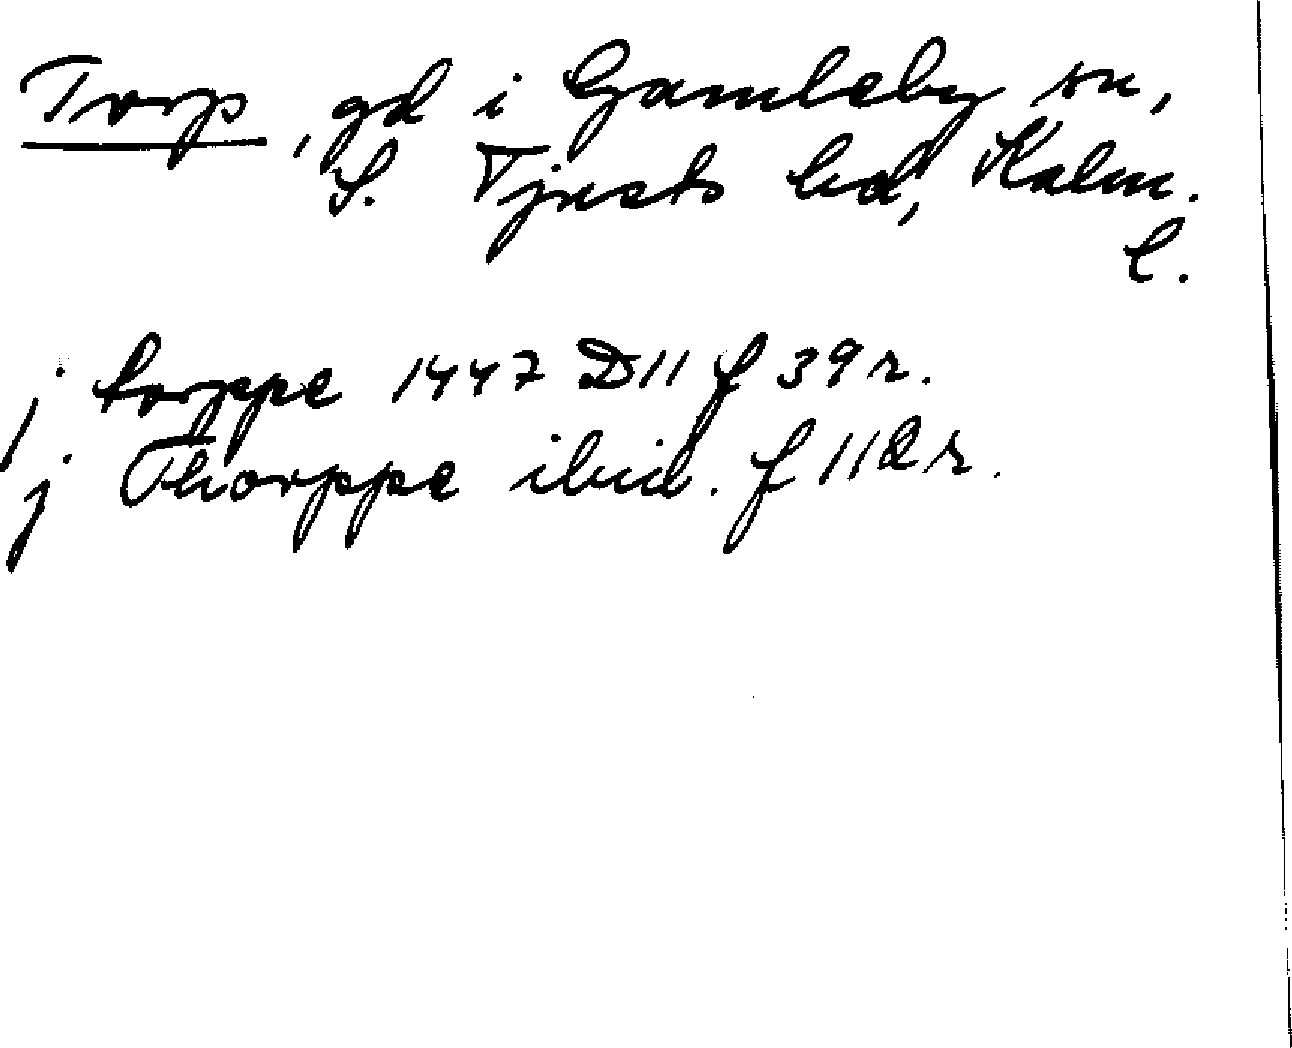 Torp, gd i Gamleby sn,
S. Tjusts hd, Kalm.
l.
j torppe 1447 D11 f 39 r.
j Thorppe ibid. f 112 r.